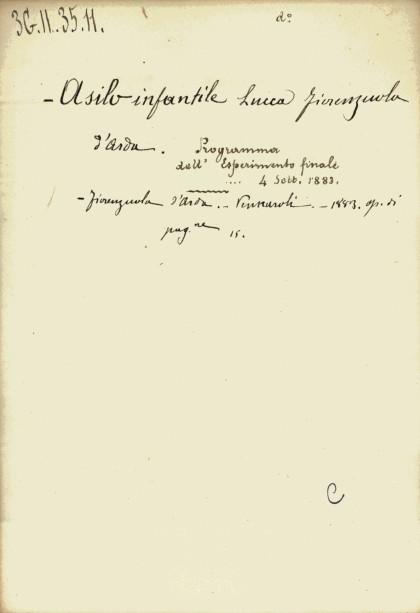 3G.II..35.11.
d°.
- Asilo infantile Lucca Fiorenzuola
d'Arda. Programma
dell' Esperimento finale
.... 4 Sett. 1883.
- Fiorenzuola d'Arda. - - 1883. op. di
pag.ne 15.
C